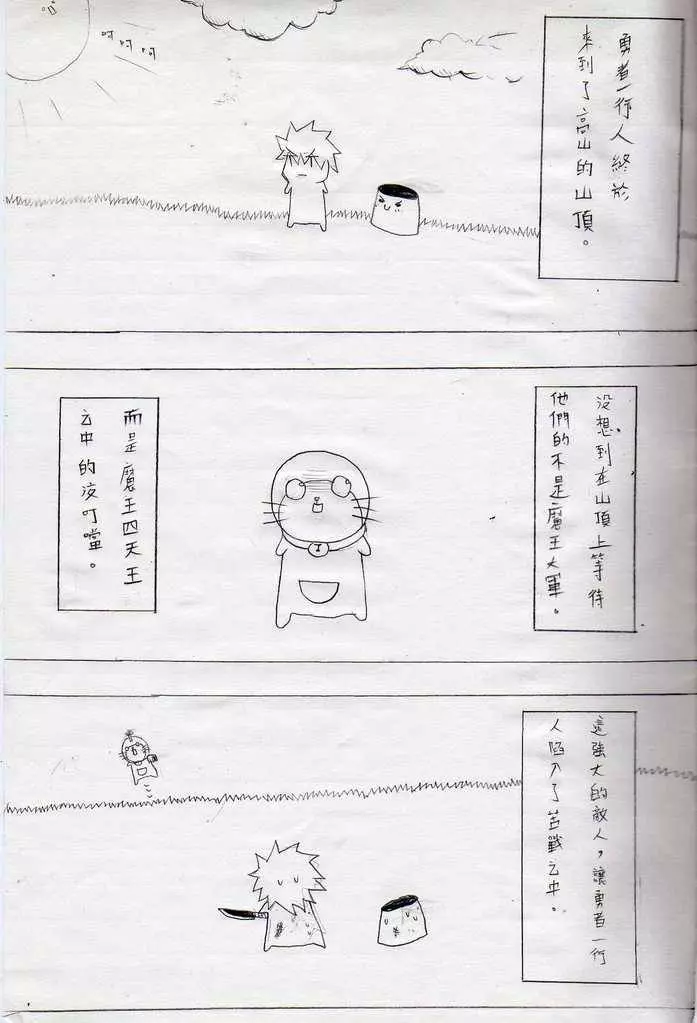 呵呵呵
勇者一行人終於
來到了高山的山頂。
没想到在山頂上等待
他們的不是魔王大軍。
而是魔王四天王
之中的沒叮噹。
這強大的敵人，讓勇者一行
人陷入了苦戰之中。